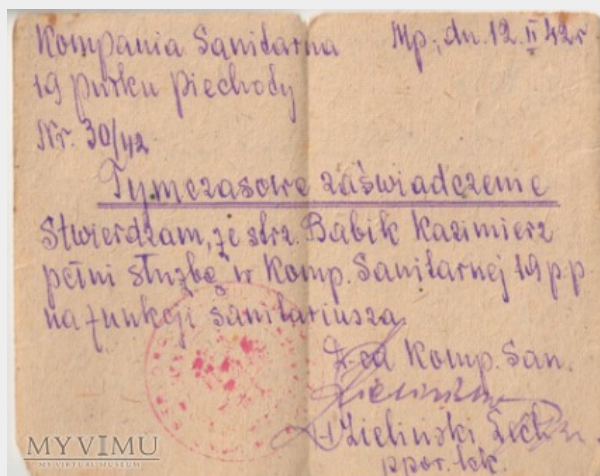 Kompania Sanitarna
Mp., dn. 12.II 42r
19 pułku piechoty
Nr. 30/42
Tymczasowe zaświadczenie
Stwierdzam, że strz. Babik Kazimierz
pełni służbę w Komp. Sanitarnej 19 p.p.
na funkcji Sanitariusza
D-ca Komp. San.
Zieliński
ppor. lek.
MYVIMU
MY VIRTUAL MUSEUM